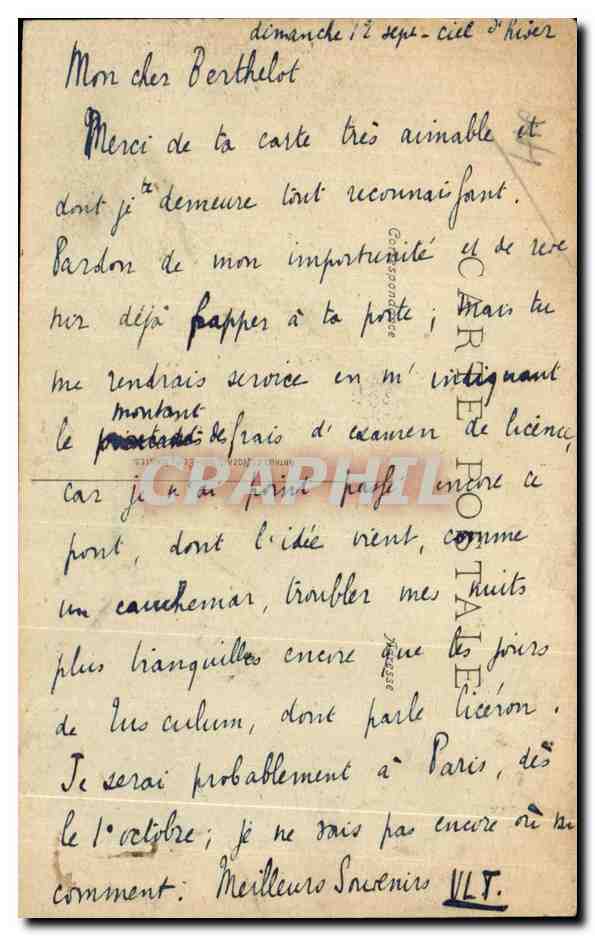 dimanche 12 sept - ciel d'hiver
Mon cher Berthelot
Merci de ta carte très aimable et
dont je te demeure tout reconnaissant.
Pardon de mon importunité et de reve
nir déjà frapper à ta porte ; mais tu
me rendrais service en m'indiquant
montant
le des frais d'examen de licence,
car je n'ai point passé encore ce
pont, dont l'idée vient, comme
un cauchemar, troubler mes nuits
plus tranquilles encore que les jours
de Tusculum, dont parle Cicéron.
Je serai probablement à Paris, dès
le 1° octobre ; je ne sais pas encore où ni
comment. Meilleurs Souvenirs VLT.
CARTE POSTALE
Correspondance
Adresse
CPAPHIL